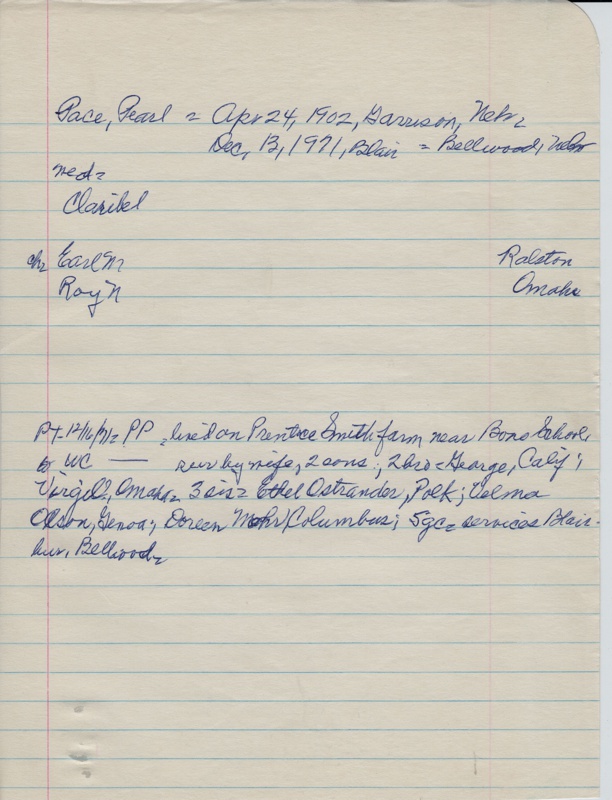 Pace, Pearl = Apr 24, 1902, Garrison, Nebr.
Dec. 13, 1971, Blair = Bellwood, Nebr
med=
Claribel
ch= Earl M Ralston
Roy N Omaha
PT-12/16/71= PP = lived on Prentice Smith farm near Bono School,
WC — sur by wife, 2 sons; 2 bro = George, Calif;
Virgil, Omaha = 3 sis = Ethel Ostrander, Polk; Velma
Olson, Genoa; Doreen Mohr, Columbus; 5gc = services Blair-
bur, Bellwood=